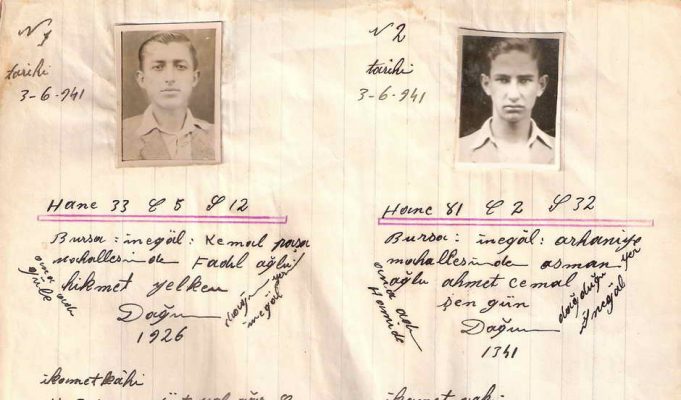 N 1
tarihi
3-6-941
Hane 33 C 5 S 12
Bursa : inegöl : Kemal paşa
mahallesinde Fadıl oğlu
hikmet yelken
Doğum
1926
ana adı
doğum yer
inegöl
ikametkâhi
N 2
tarihi
3-6-941
Hane 81 C 2 S 32
Bursa : inegöl : orhaniye
mahallesinde osman
oğlu ahmet cemal
şen gün
Doğum
1341
ana adı
Hamide
doğduğu yer
İnegöl